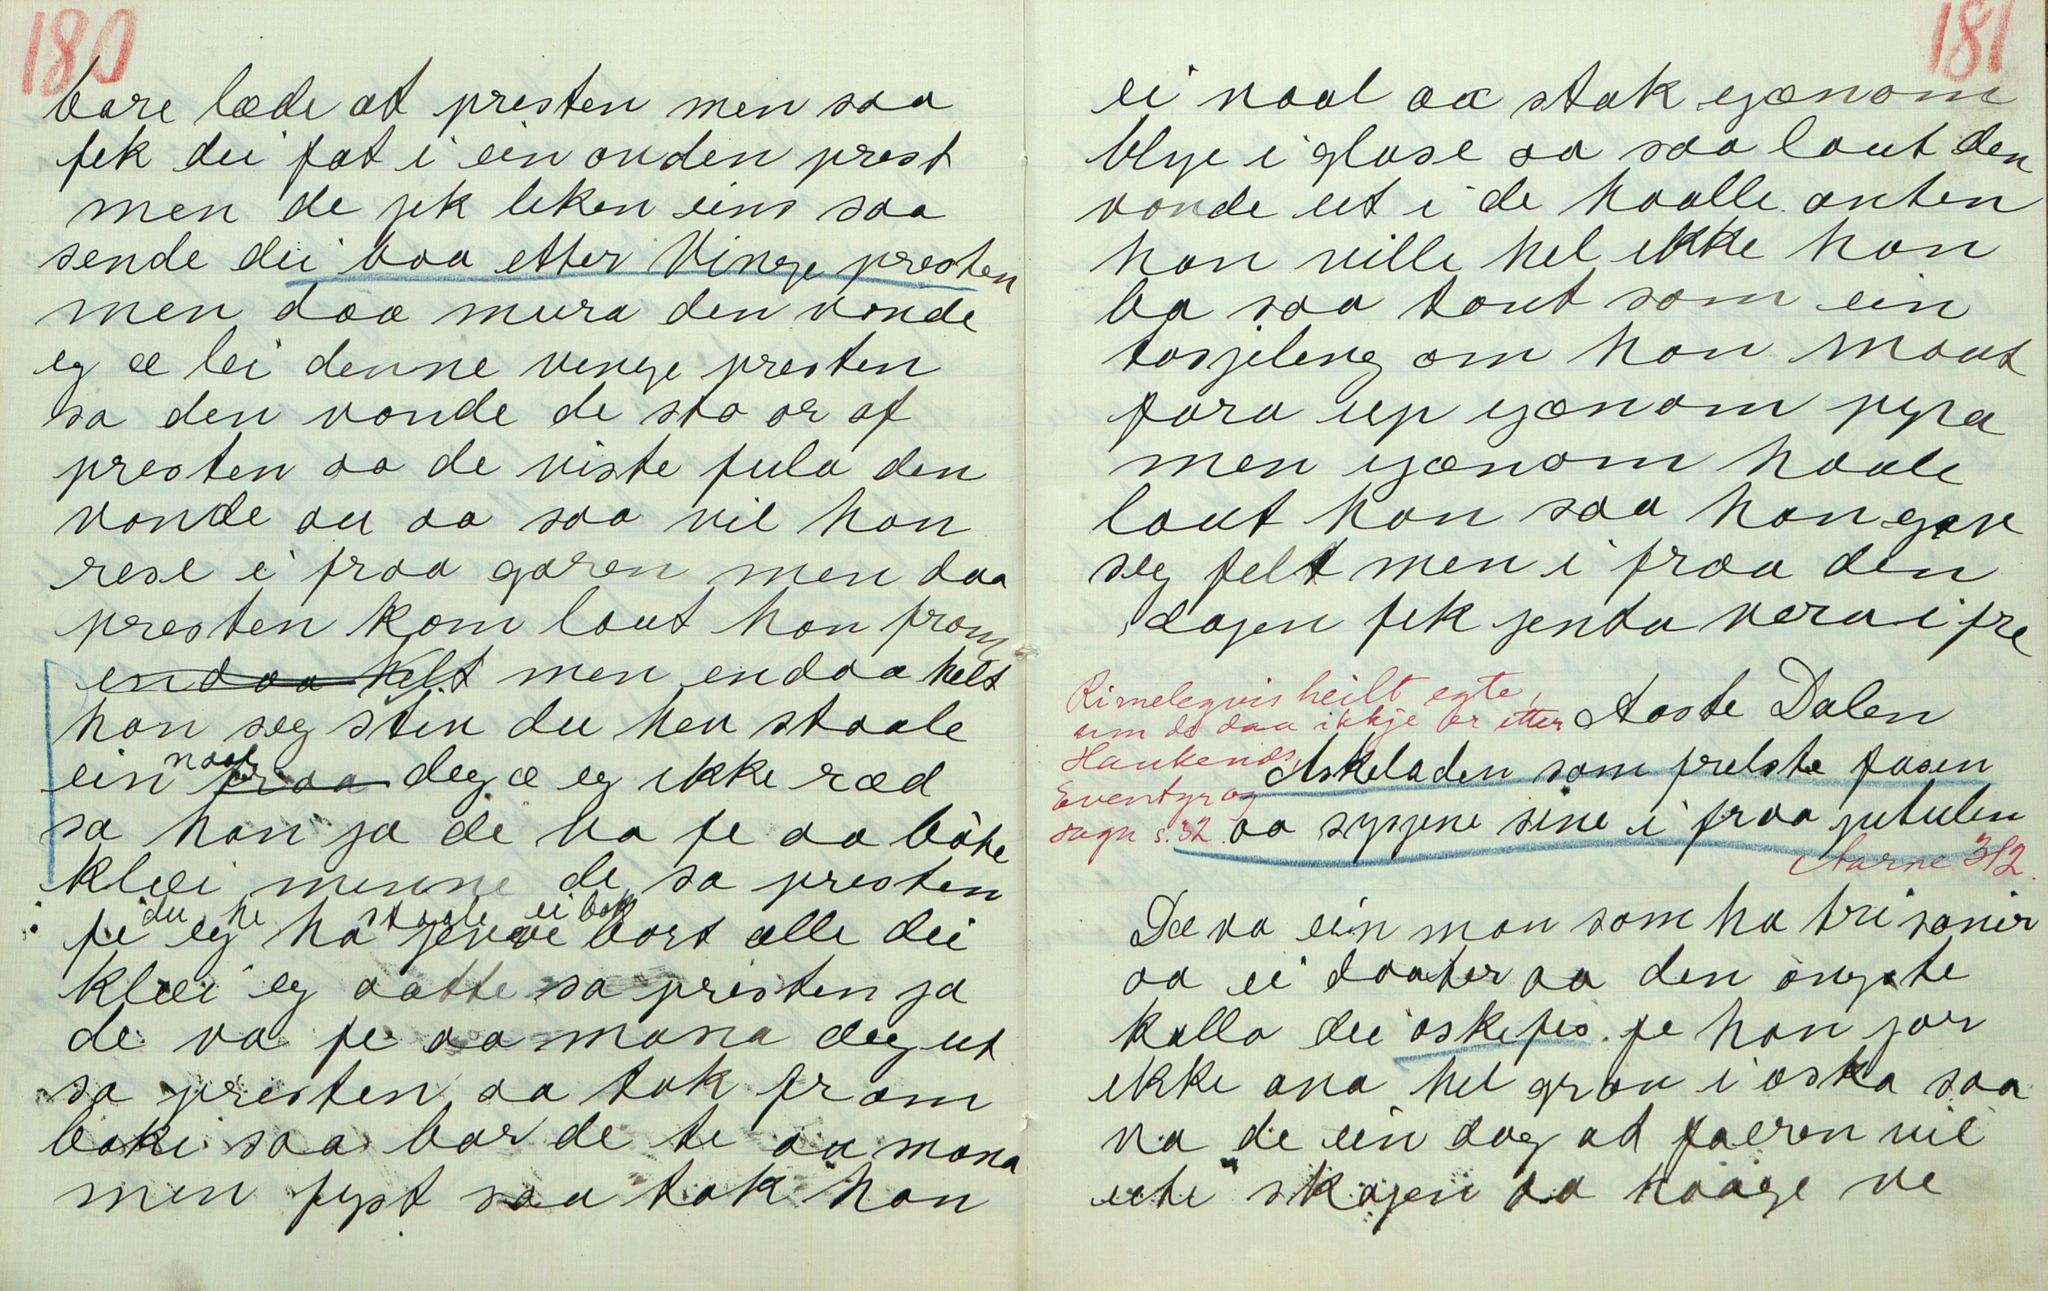 180
bare læde at presten men saa
fek dei fat i ein anden prest
men de jek liken eins saa
sende dei boa etter Vinge presten
men daa mura den vonde
eg æ lei denne venge presten
sa den vonde de sto or af
presten aa de viste fula den
vonde au aa saa vil han
rese i fraa garen men daa
presten kom laut han fram
endaa helt men endaa helt
han seg stin du hev staale
ein naal fraa deg æ eg ikke ræd
sa han ja de va fe aa bøte
klæi minne de sa presten
du he staale ei bok
fe eg ha jeve bort alle dei
klæi eg aatte sa presten ja
de va fe aa mana deg ut
sa presten aa tok fram
boki saa bar de te aa mana
men fyst saa tok han
181
ei naal aa stak gænom
blye i glase aa saa laut den
vonde ut i de haalle anten
han ville hel ikke han
ba saa tout som ein
tosjeleng om han maat
fara up gænom pypa
men gænom haale
laut han saa han gav
seg felt men i fraa den
dagen fek jenta væra i fre
Rimelegvis heilt egte,
um de daa ikkje er etter
Haukenæs,
Eventyr og
sagn s. 32.
Aaste Dalen
Askeladen som frelste faren
aa sysjene sine i fraa jutulen
Aarne 312.
Dæ va ein man som ha tri sønir
aa ei daater aa den øngste
kalla dei oskefis. fe han jor
ikke ana hel grov i oska saa
va de ein dag at faeren vil
ute skogen aa haage ve